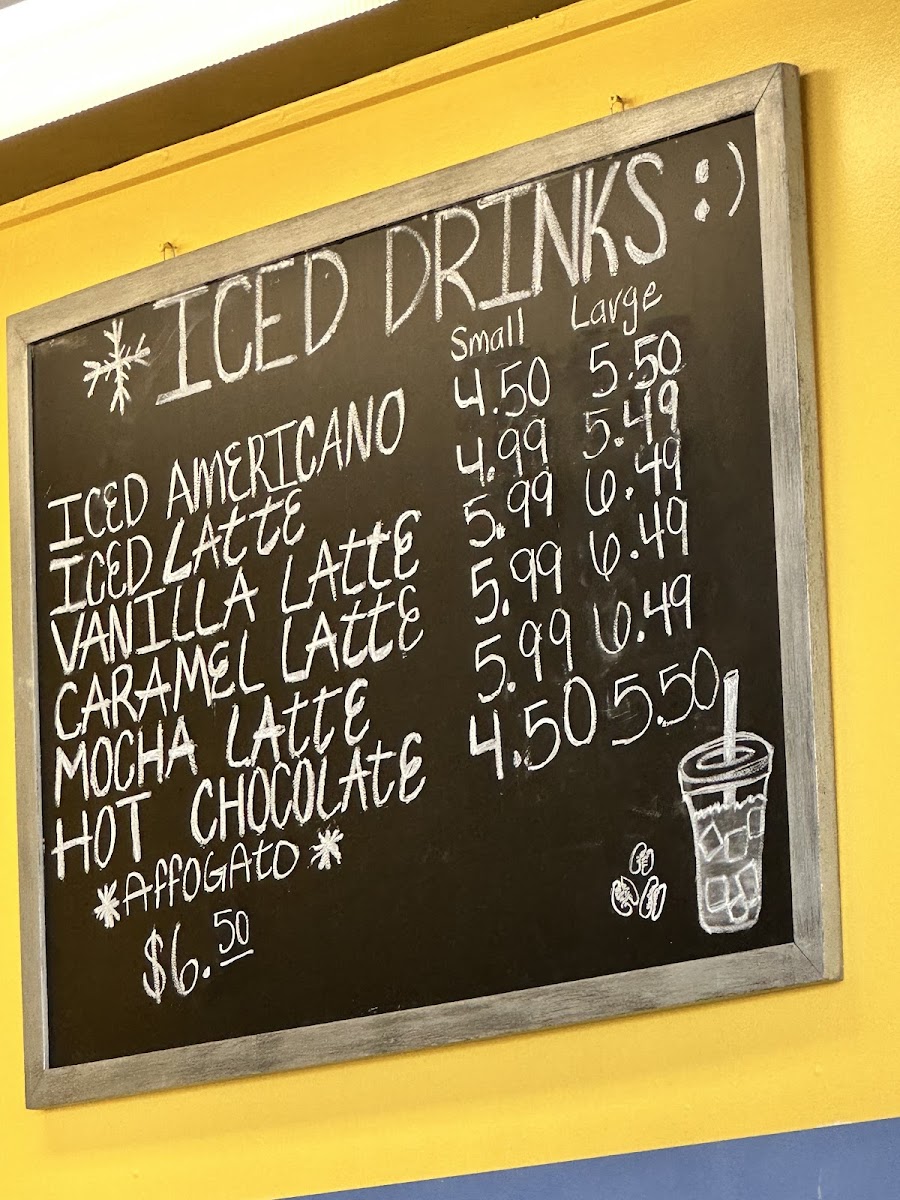 ICED DRINKS :)
Small Large
ICED AMERICANO 4.50 5.50
ICED LATTE 4.99 5.49
VANILLA LATTE 5.99 6.49
CARAMEL LATTE 5.99 6.49
MOCHA LATTE 5.99 6.49
HOT CHOCOLATE 4.50 5.50
*AFFOGATO*
$6.50